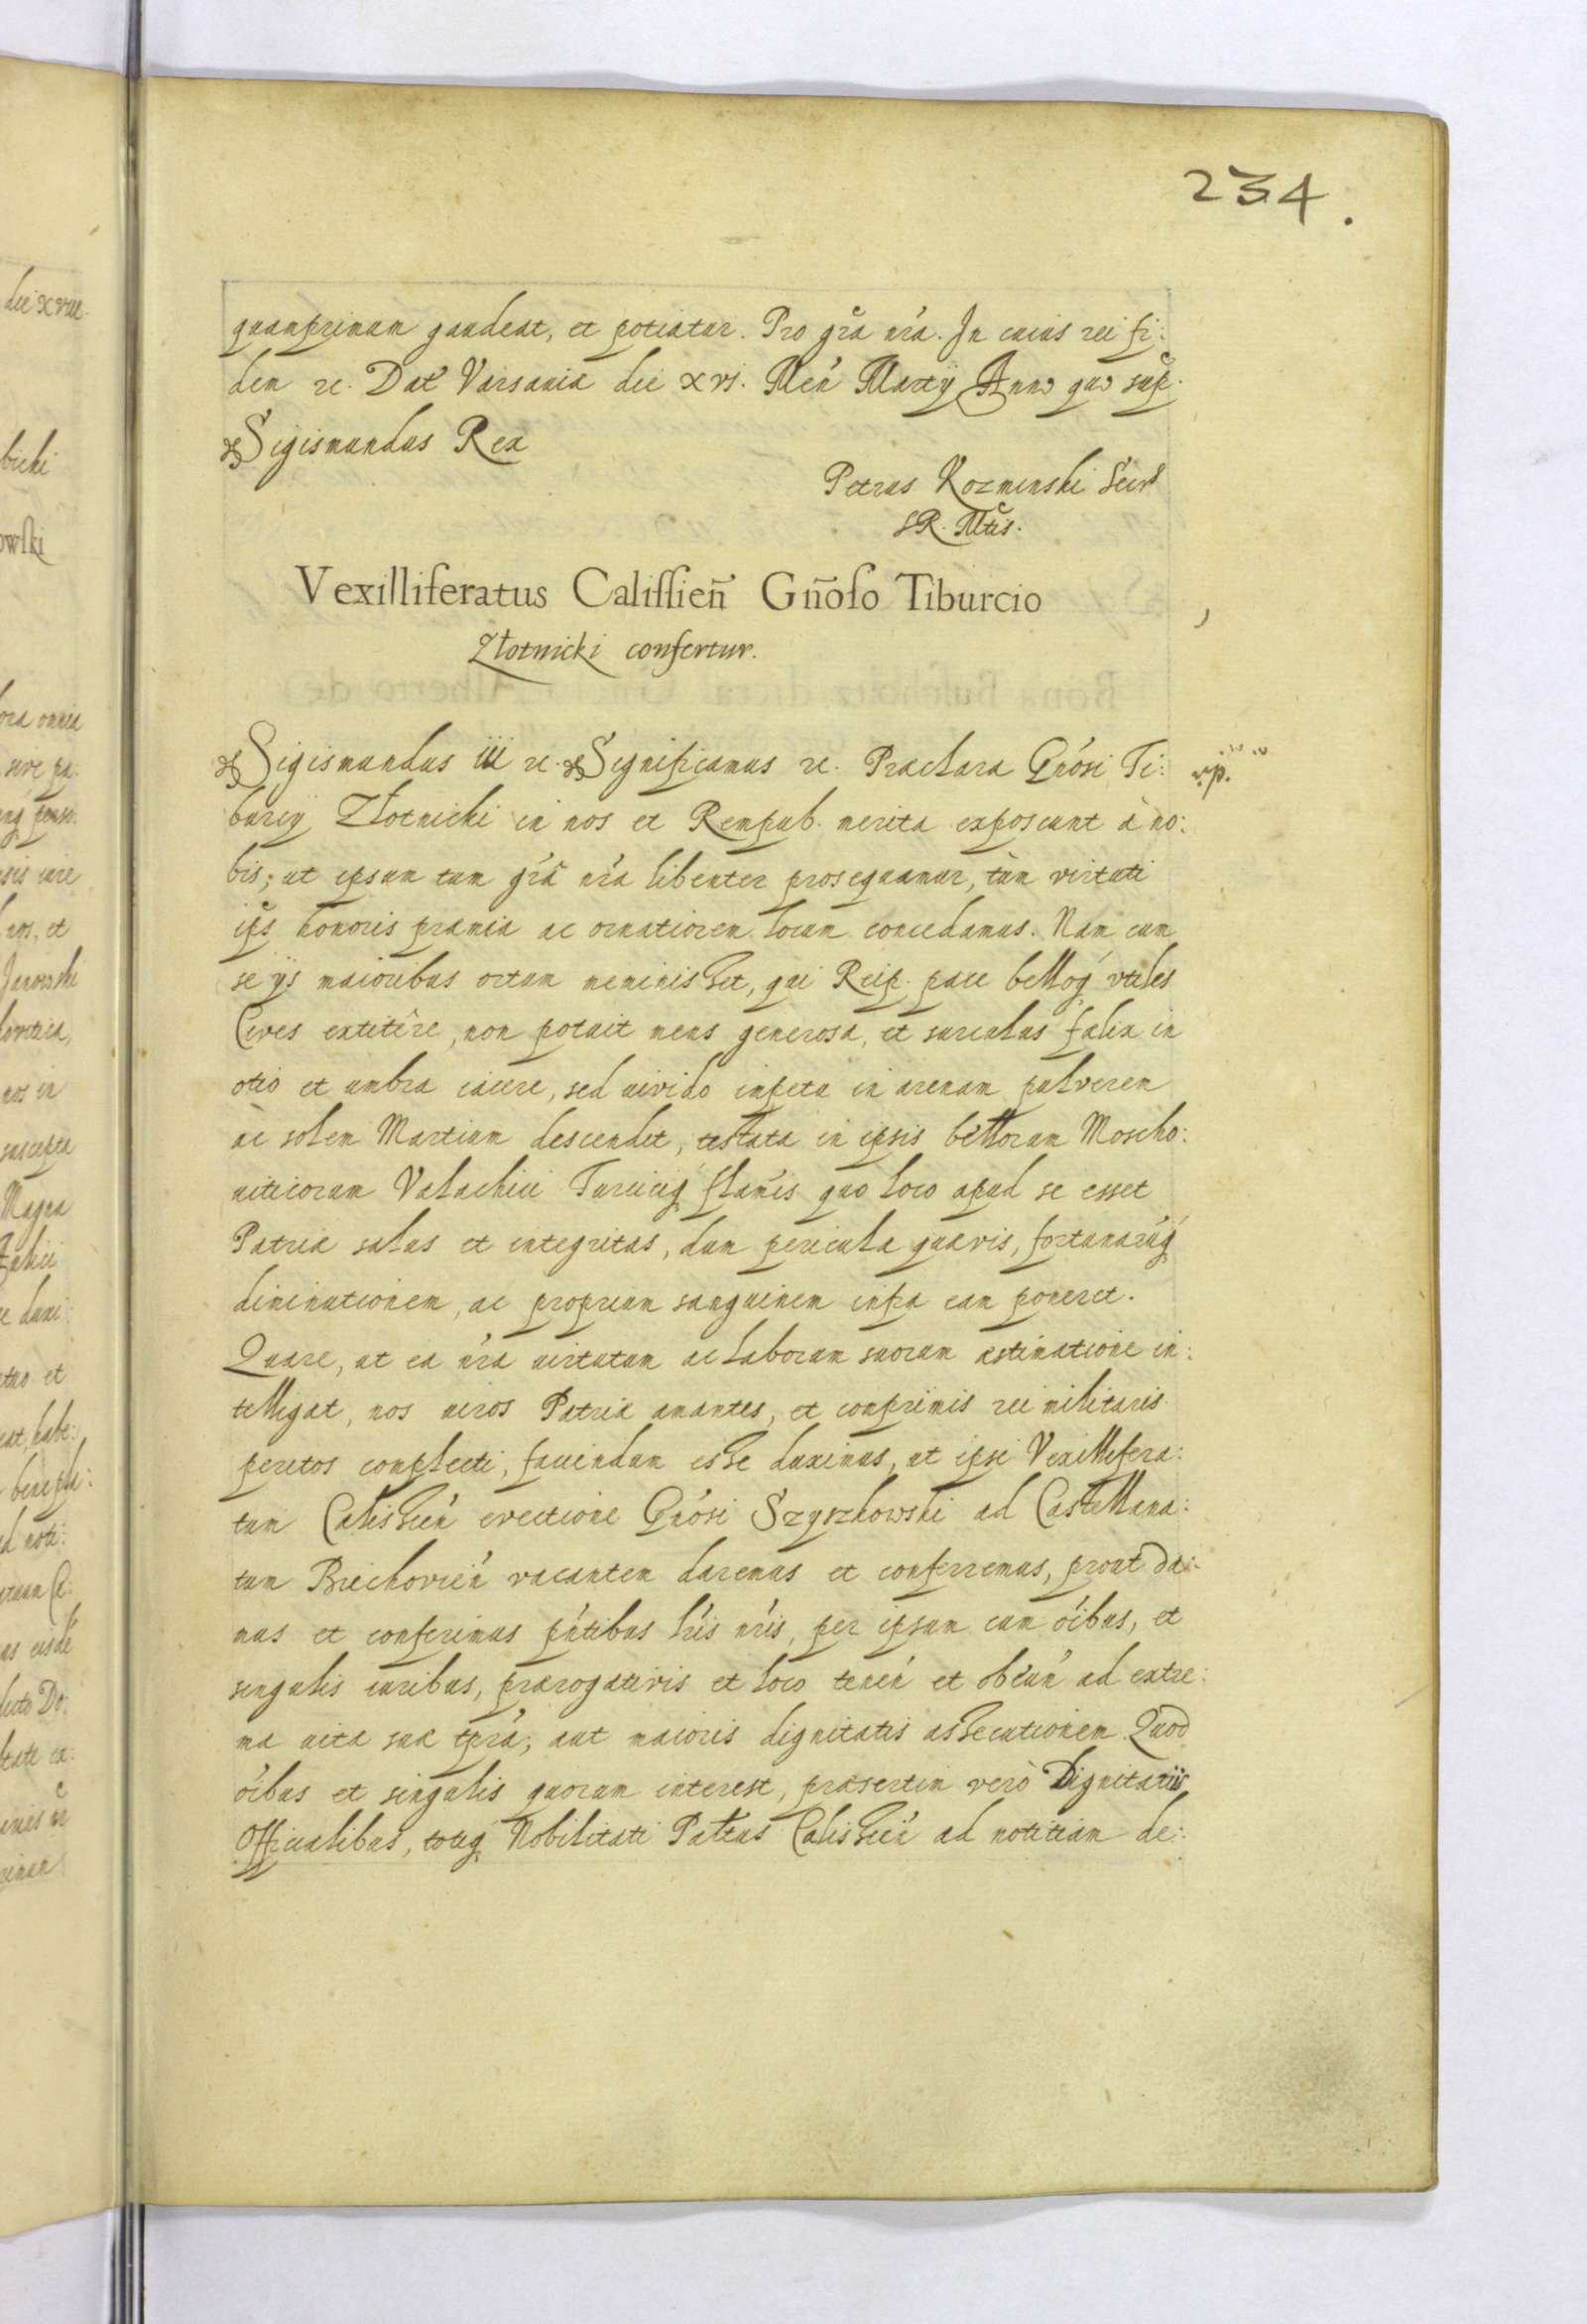 234.
quamprimum gaudeat, et potiatur. Pro gra nra. In cuius rei fi:
dem etc. Dat Varsauiæ die xvi. Men Martij Anno quo sup.
Sigismundus Rex
Petrus Kozminski Secr
S R. Mtis.
Vexilliferatus Calissien̄ Gn̄oso Tiburcio
Złotnicki confertur.
Sigismundus iii etc. Significamus etc. Praeclara Gnosi Ti:
burcij Złotnicki in nos et Rempub. merita exposcunt à no:
bis; ut ipsum tum gra nra libenter prosequamur, tùm virtuti
ips honoris præmia ac ornatiorem locum concedamus. Nam cum
se ijs maioribus ortum meminisset, qui Reip. pace belloq vtiles
Ciues extitêre, non potuit mens generosa, et surculus fælix in
otio et umbra iacere, sed uiuido impetu in arenam puluerem
ac solem Martium descendit, testata in ipsis bellorum Moscho:
uiticorum Valachici Turciciq flamis quo loco apud se esset
Patriæ salus et integritas, dum pericula quævis, fortunarúq
diminutionem, ac proprium sanguinem infra eam poneret.
Quare, ut ea nra uirtutum ac laborum suorum æstimatione in:
telligat, nos uiros Patriæ amantes, et comprimis rei militaris
peritos complecti, faciendum esse duximus, ut ipsi Vexillifera:
tum Calissien evectione Gnosi Szyszkowski ad Castellana:
tum Brechovien vacantem daremus et conferremus, prout da:
mus et conferimus pntibus lris nris, per ipsum cum oibus, et
singulis iuribus, prærogativis et loco tenen et obeun ad extre:
ma uitæ suæ tpra, aut maioris dignitatis assecutionem. Quod
oibus et singulis quorum interest, præsertim verò Dignitariis
Officialibus, totiq Nobilitati Pałtus Calissien ad notitiam de: